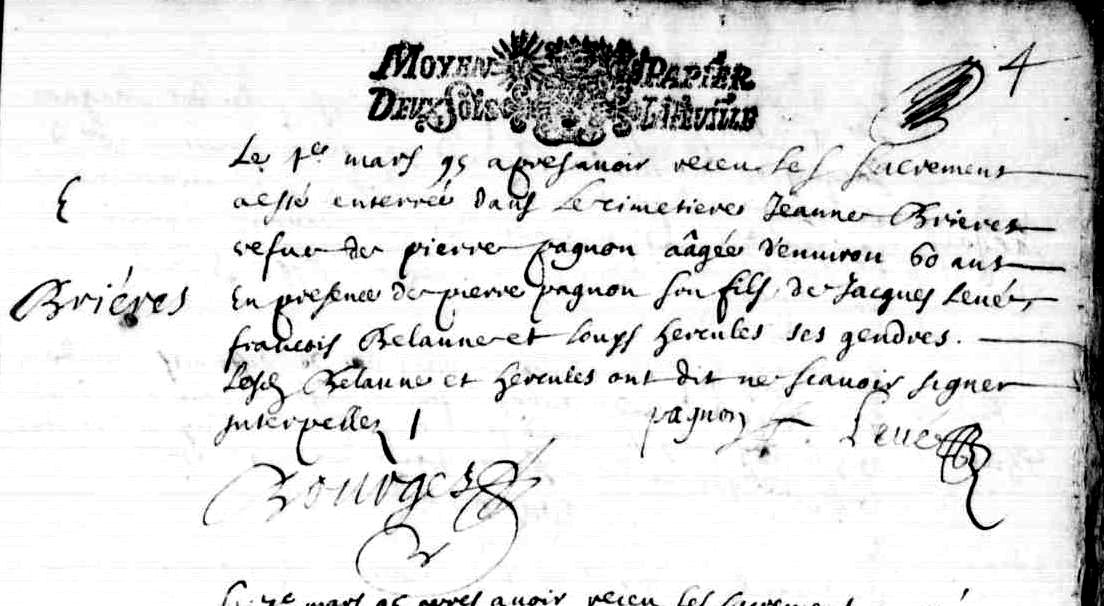 4
MOYEN PAPIER
DEUX SOLS LA FEUILLE
Le 1er mars 95 apres avoir receu les sacrement
a esté enterrée dans le cimetiere Jeanne Brieres
vefue de pierre pagnon aâgée d'enuiron 60 ans
Briéres
En presence de pierre pagnon son fils de Jacques Leué
francois Belanne et Loups hercules ses gendres.
Lesd Belanne et hercules ont dit ne scauoir signer
interpellez
pagnon Leué
Bourges
Le mars 95 apres avoir receu les sacrement